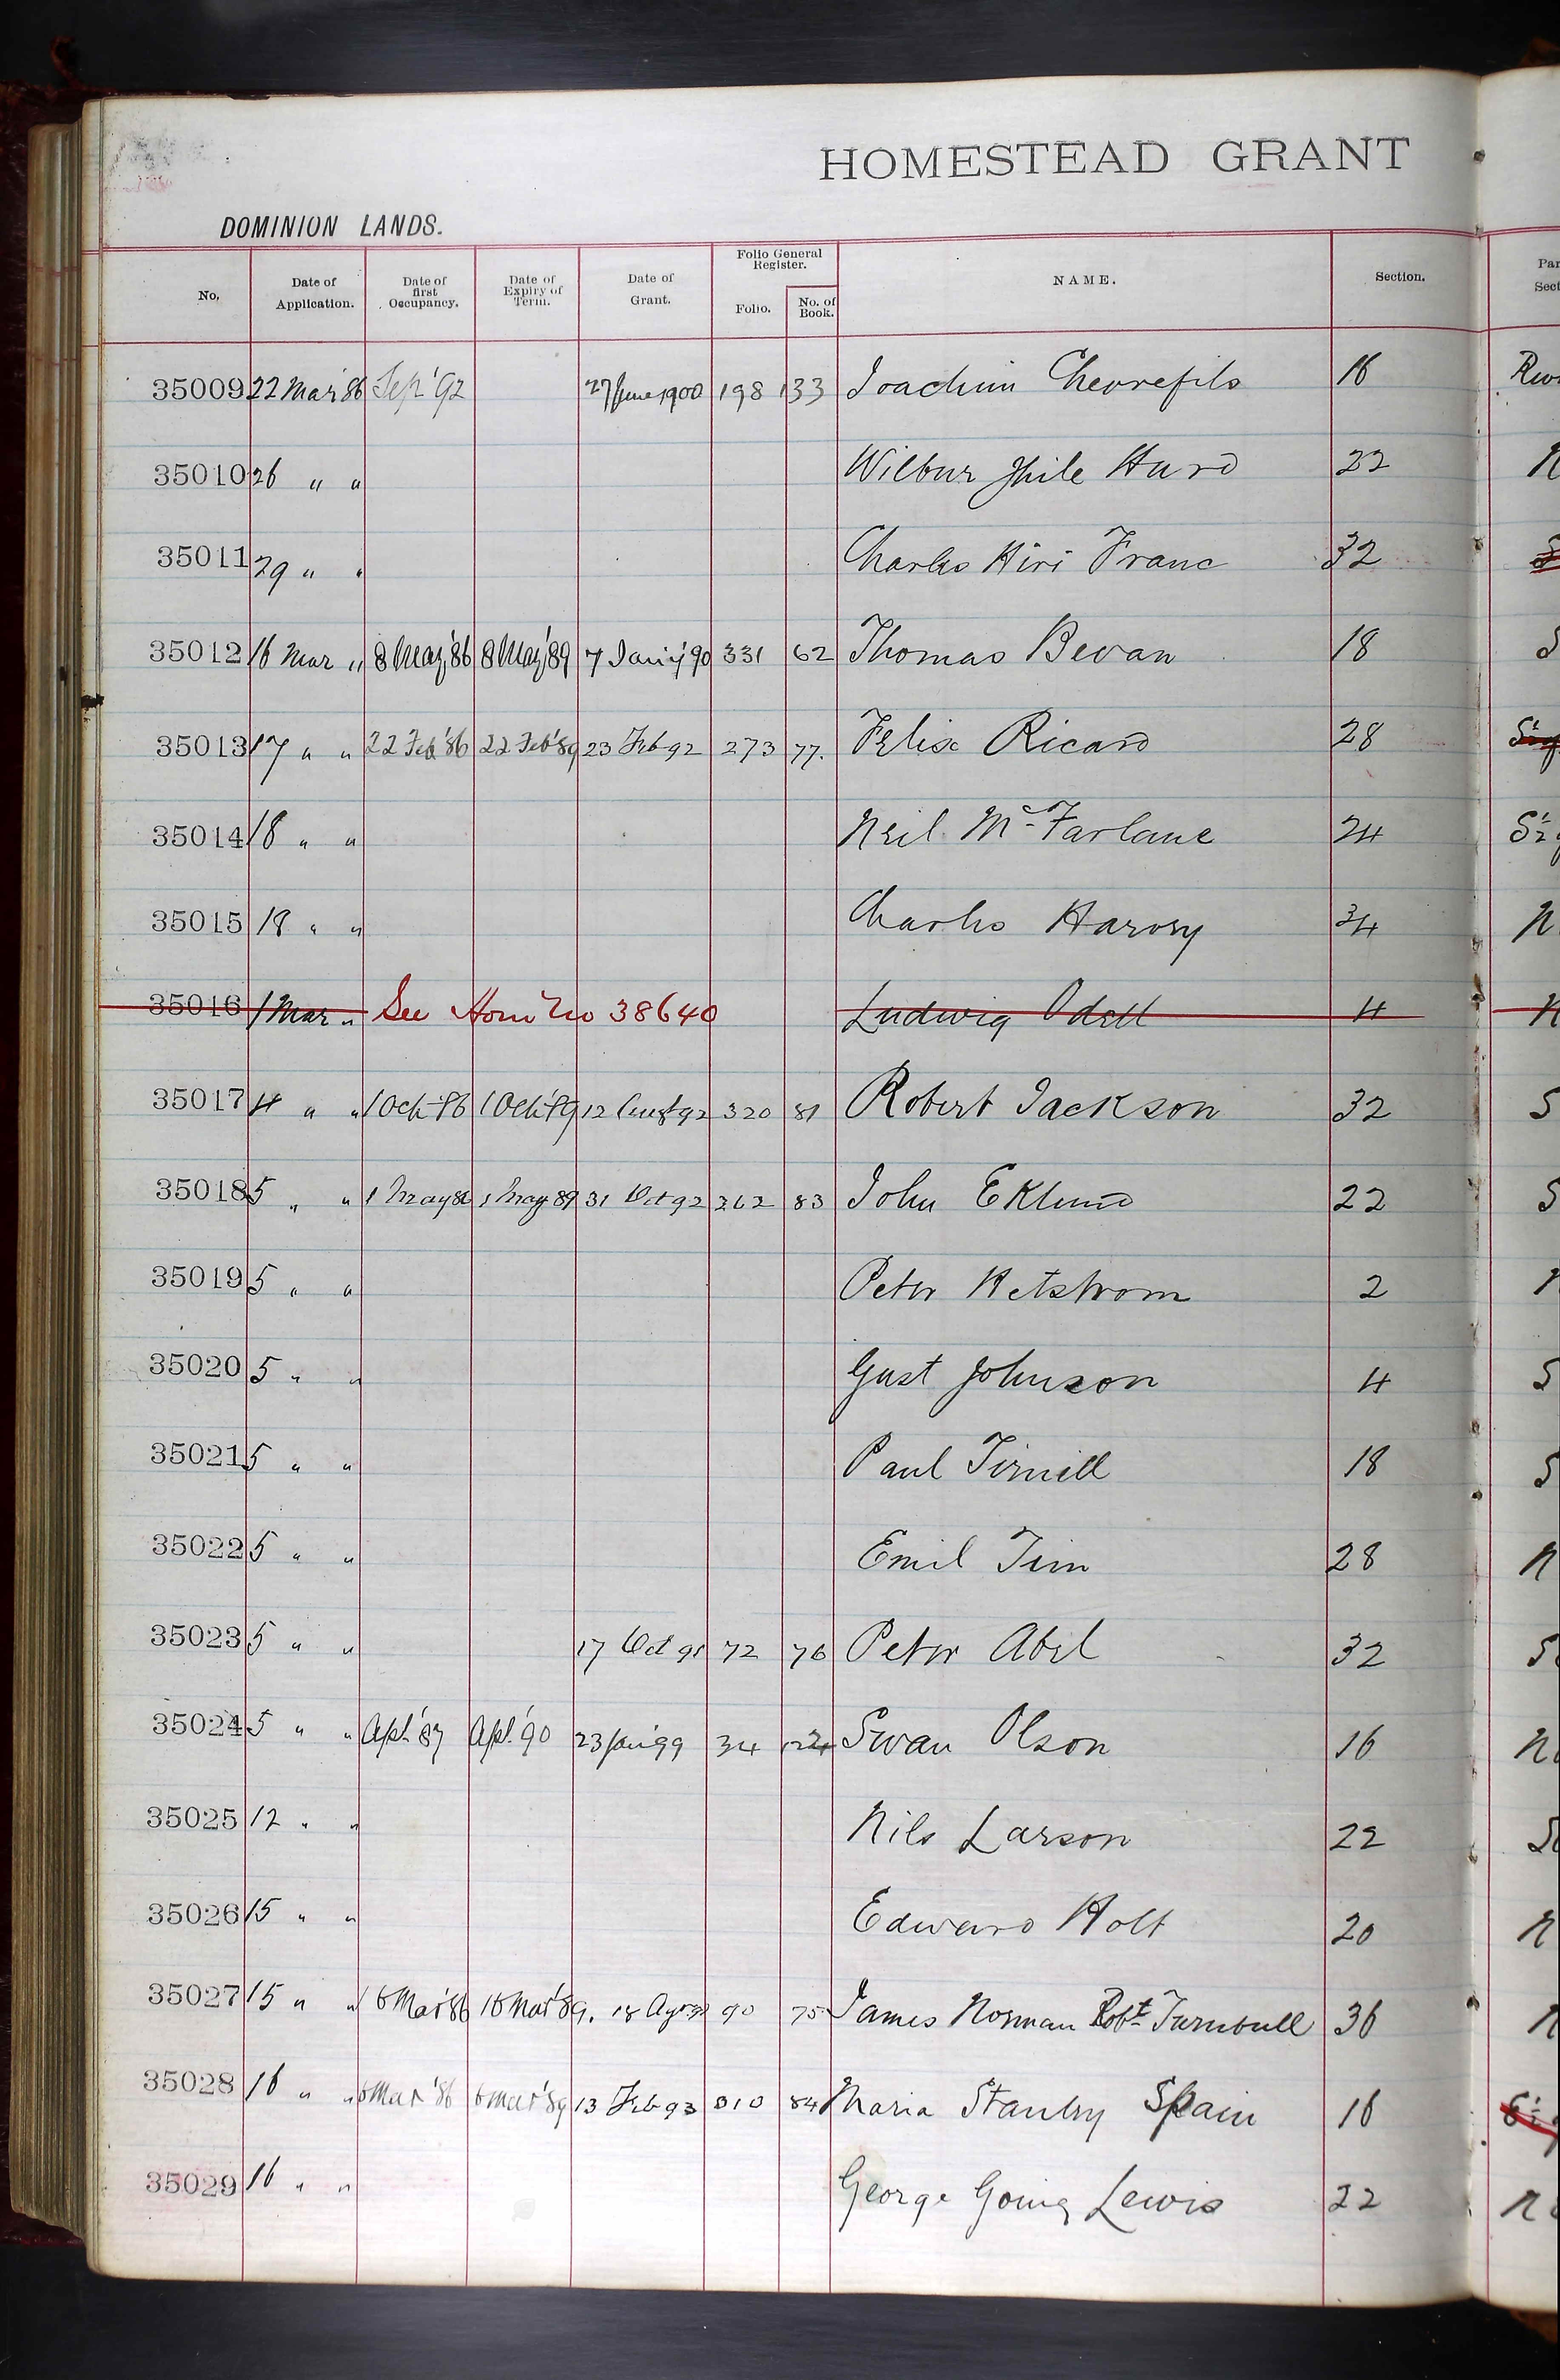 HOMESTEAD GRANT
DOMINION LANDS.
No. Date of Application. Date of first Occupancy. Date of Expiry of Term. Date of Grant. Folio General Register. Folio. No. of Book. NAME. Section.
35009 22 Mar '86 Sep '92 27 June 1900 198 133 Joachim Chevrefils 16
35010 26 " " Wilbur Hurd 22 N
35011 29 " " Charles Franc 32
35012 16 Mar " 8 May '86 8 May '89 7 Jany '90 331 62 Thomas Bevan 18 S
35013 17 " " 22 Feb '86 22 Feb '89 23 Feb 92 273 77. Felix Ricard 28
35014 18 " " Neil McFarlane 24 S½
35015 18 " " Charles Harvey 34 N
35016 1 Mar " See Hom No 38640 Ludwig Odell 4 N
35017 4 " " 1 Oct 86 1 Oct '89 12 Augt 92 320 81 Robert Jackson 32 S
35018 5 " " 1 May 86 1 May 89 31 Oct 92 262 83 John Eklund 22 S
35019 5 " " Peter Hetstrom 2
35020 5 " " Gust Johnson 4 S
35021 5 " " Paul 18 S
35022 5 " " Emil 28 N
35023 5 " " 17 Oct 91 72 76 Peter Abel 32 S
35024 5 " " Apl. '87 Apl. '90 23 Jan '99 34 124 Swan Olson 16 N
35025 12 " " Nils Larson 22 S
35026 15 " " Edward Holt 20 N
35027 15 " " 16 Mar '86 16 Mar '89. 18 90 75 James Norman Robt Turnbull 36 N
35028 16 " " 6 Mar '86 6 Mar '89 13 Feb 93 310 84 Maria Stanley Spain 16
35029 16 " " George Going Lewis 22 N